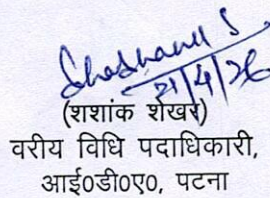 Shashank S
21/4/26
(शशांक शेखर)
वरीय विधि पदाधिकारी,
आई०डी०ए०, पटना